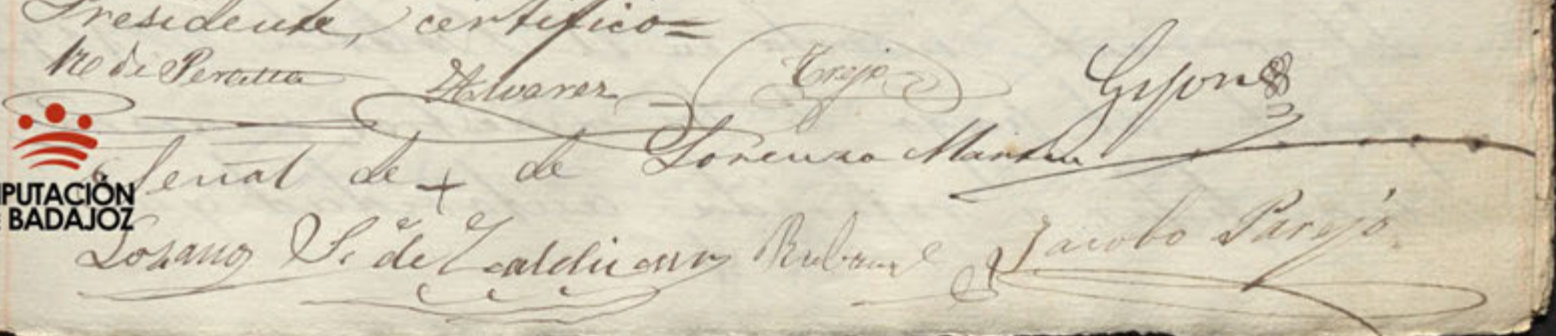 Presidente, certifico=
de Peralta Alvarez Trejo Gijon
Señal de + de Lorenzo Martin
PUTACIÓN
BADAJOZ
Lozano S. de Zaldivar Jacobo Parejo